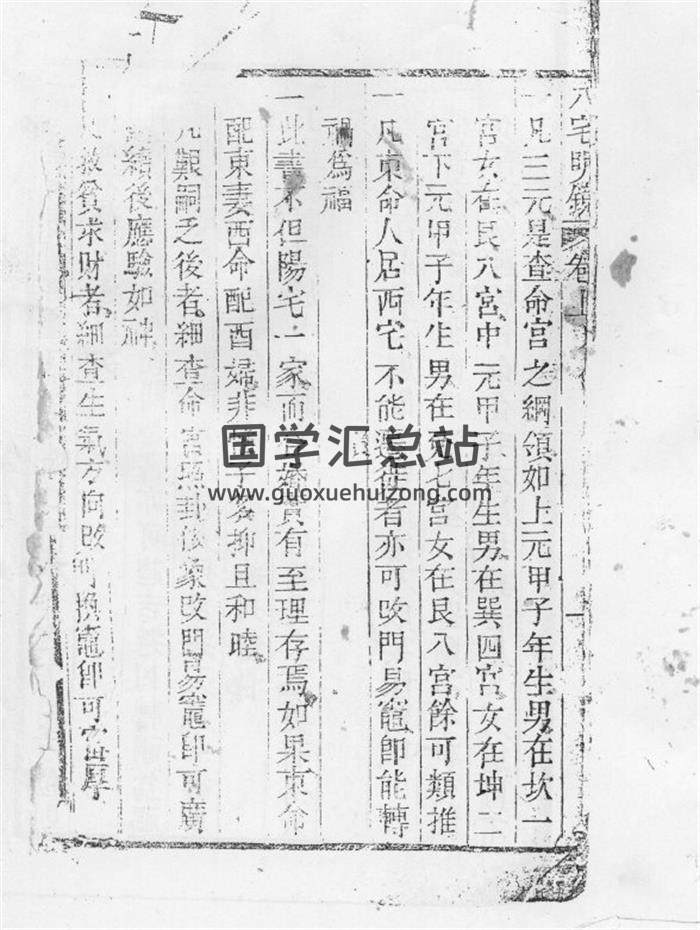 八宅明鏡 卷上
一凡三元是查命宮之綱領如上元甲子年生男在坎一
宮女在艮八宮中元甲子年生男在巽四宮女在坤二
宮下元甲子年生男在兌七宮女在艮八宮餘可類推
一凡東命人居西宅不能遷徙者亦可改門易竈即能轉
禍為福
一此書不但陽宅一家而婚實有至理存焉如果東命
配東妻西命配酉婦非子多抑且和睦
凡艱嗣乏後者細查命宮照卦依象改門易竈即可廣
續後應驗如神
救貧求財者細查生氣方向改換竈即可富厚
国学汇总站
www.guoxuehuizong.com